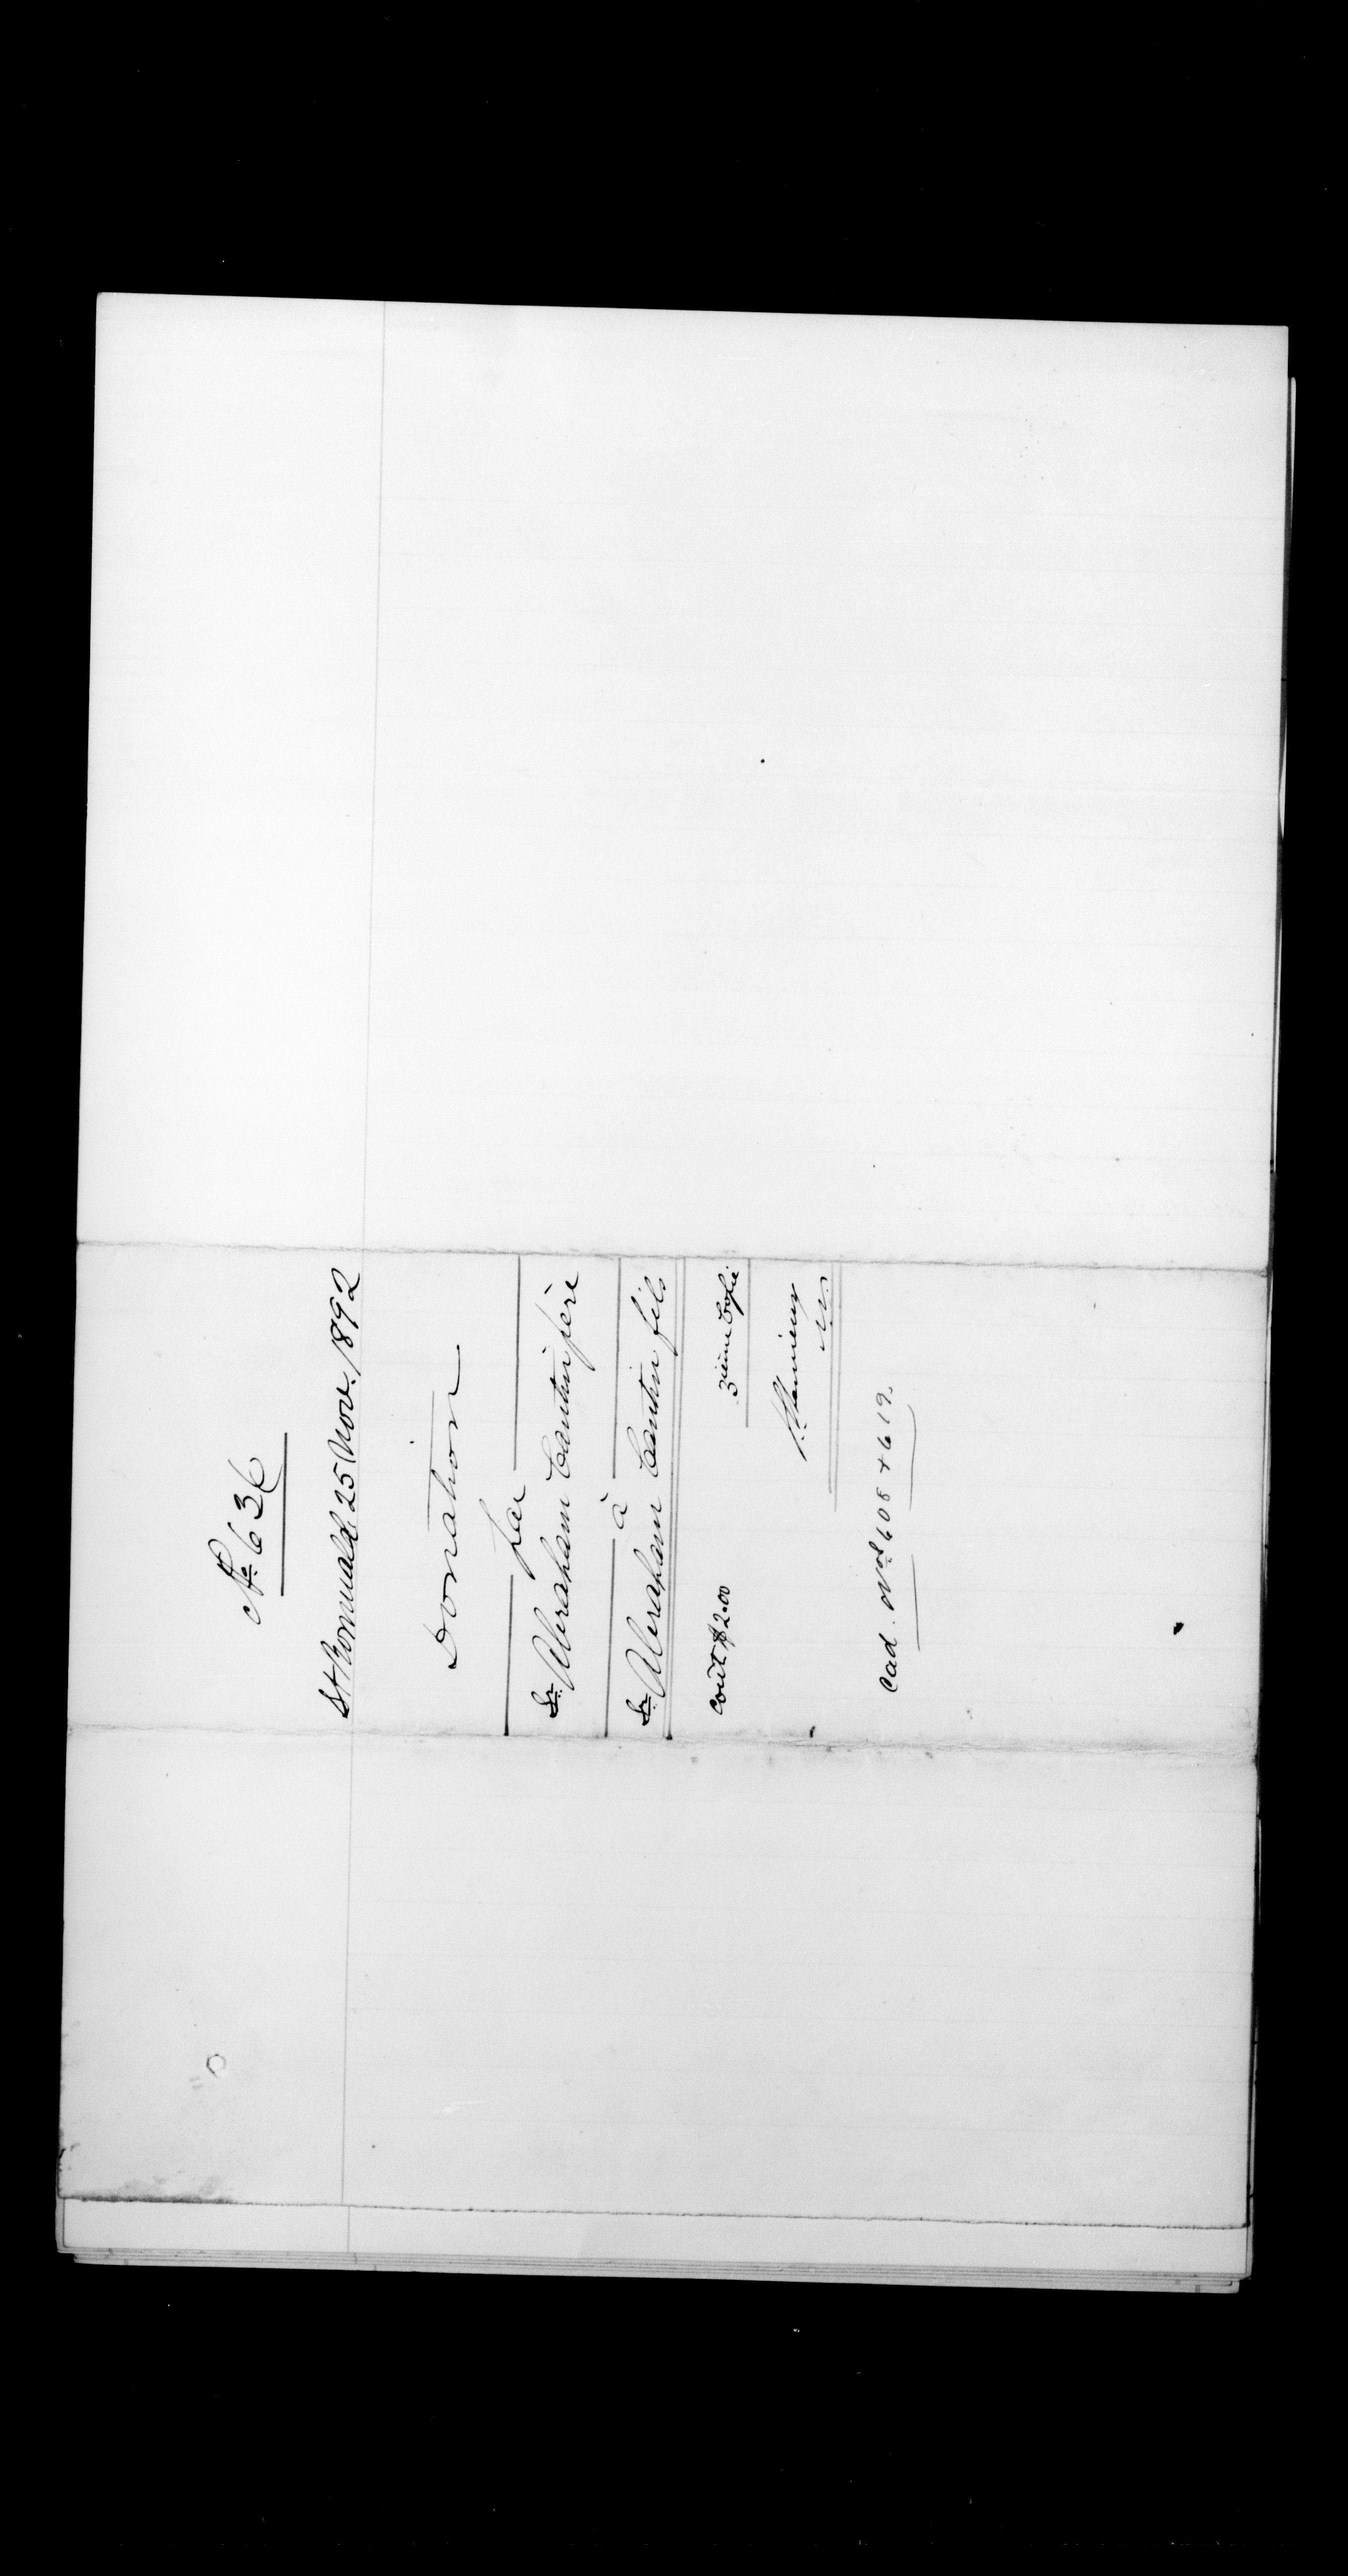 No. 636
St Romuald, 25 Nov. 1892
Donation
par
Sr. Abraham Cantin père
à
Sr. Abraham Cantin fils
3ième Copie
coût $2.00
N.P.
Cad. Nos 608 & 619.